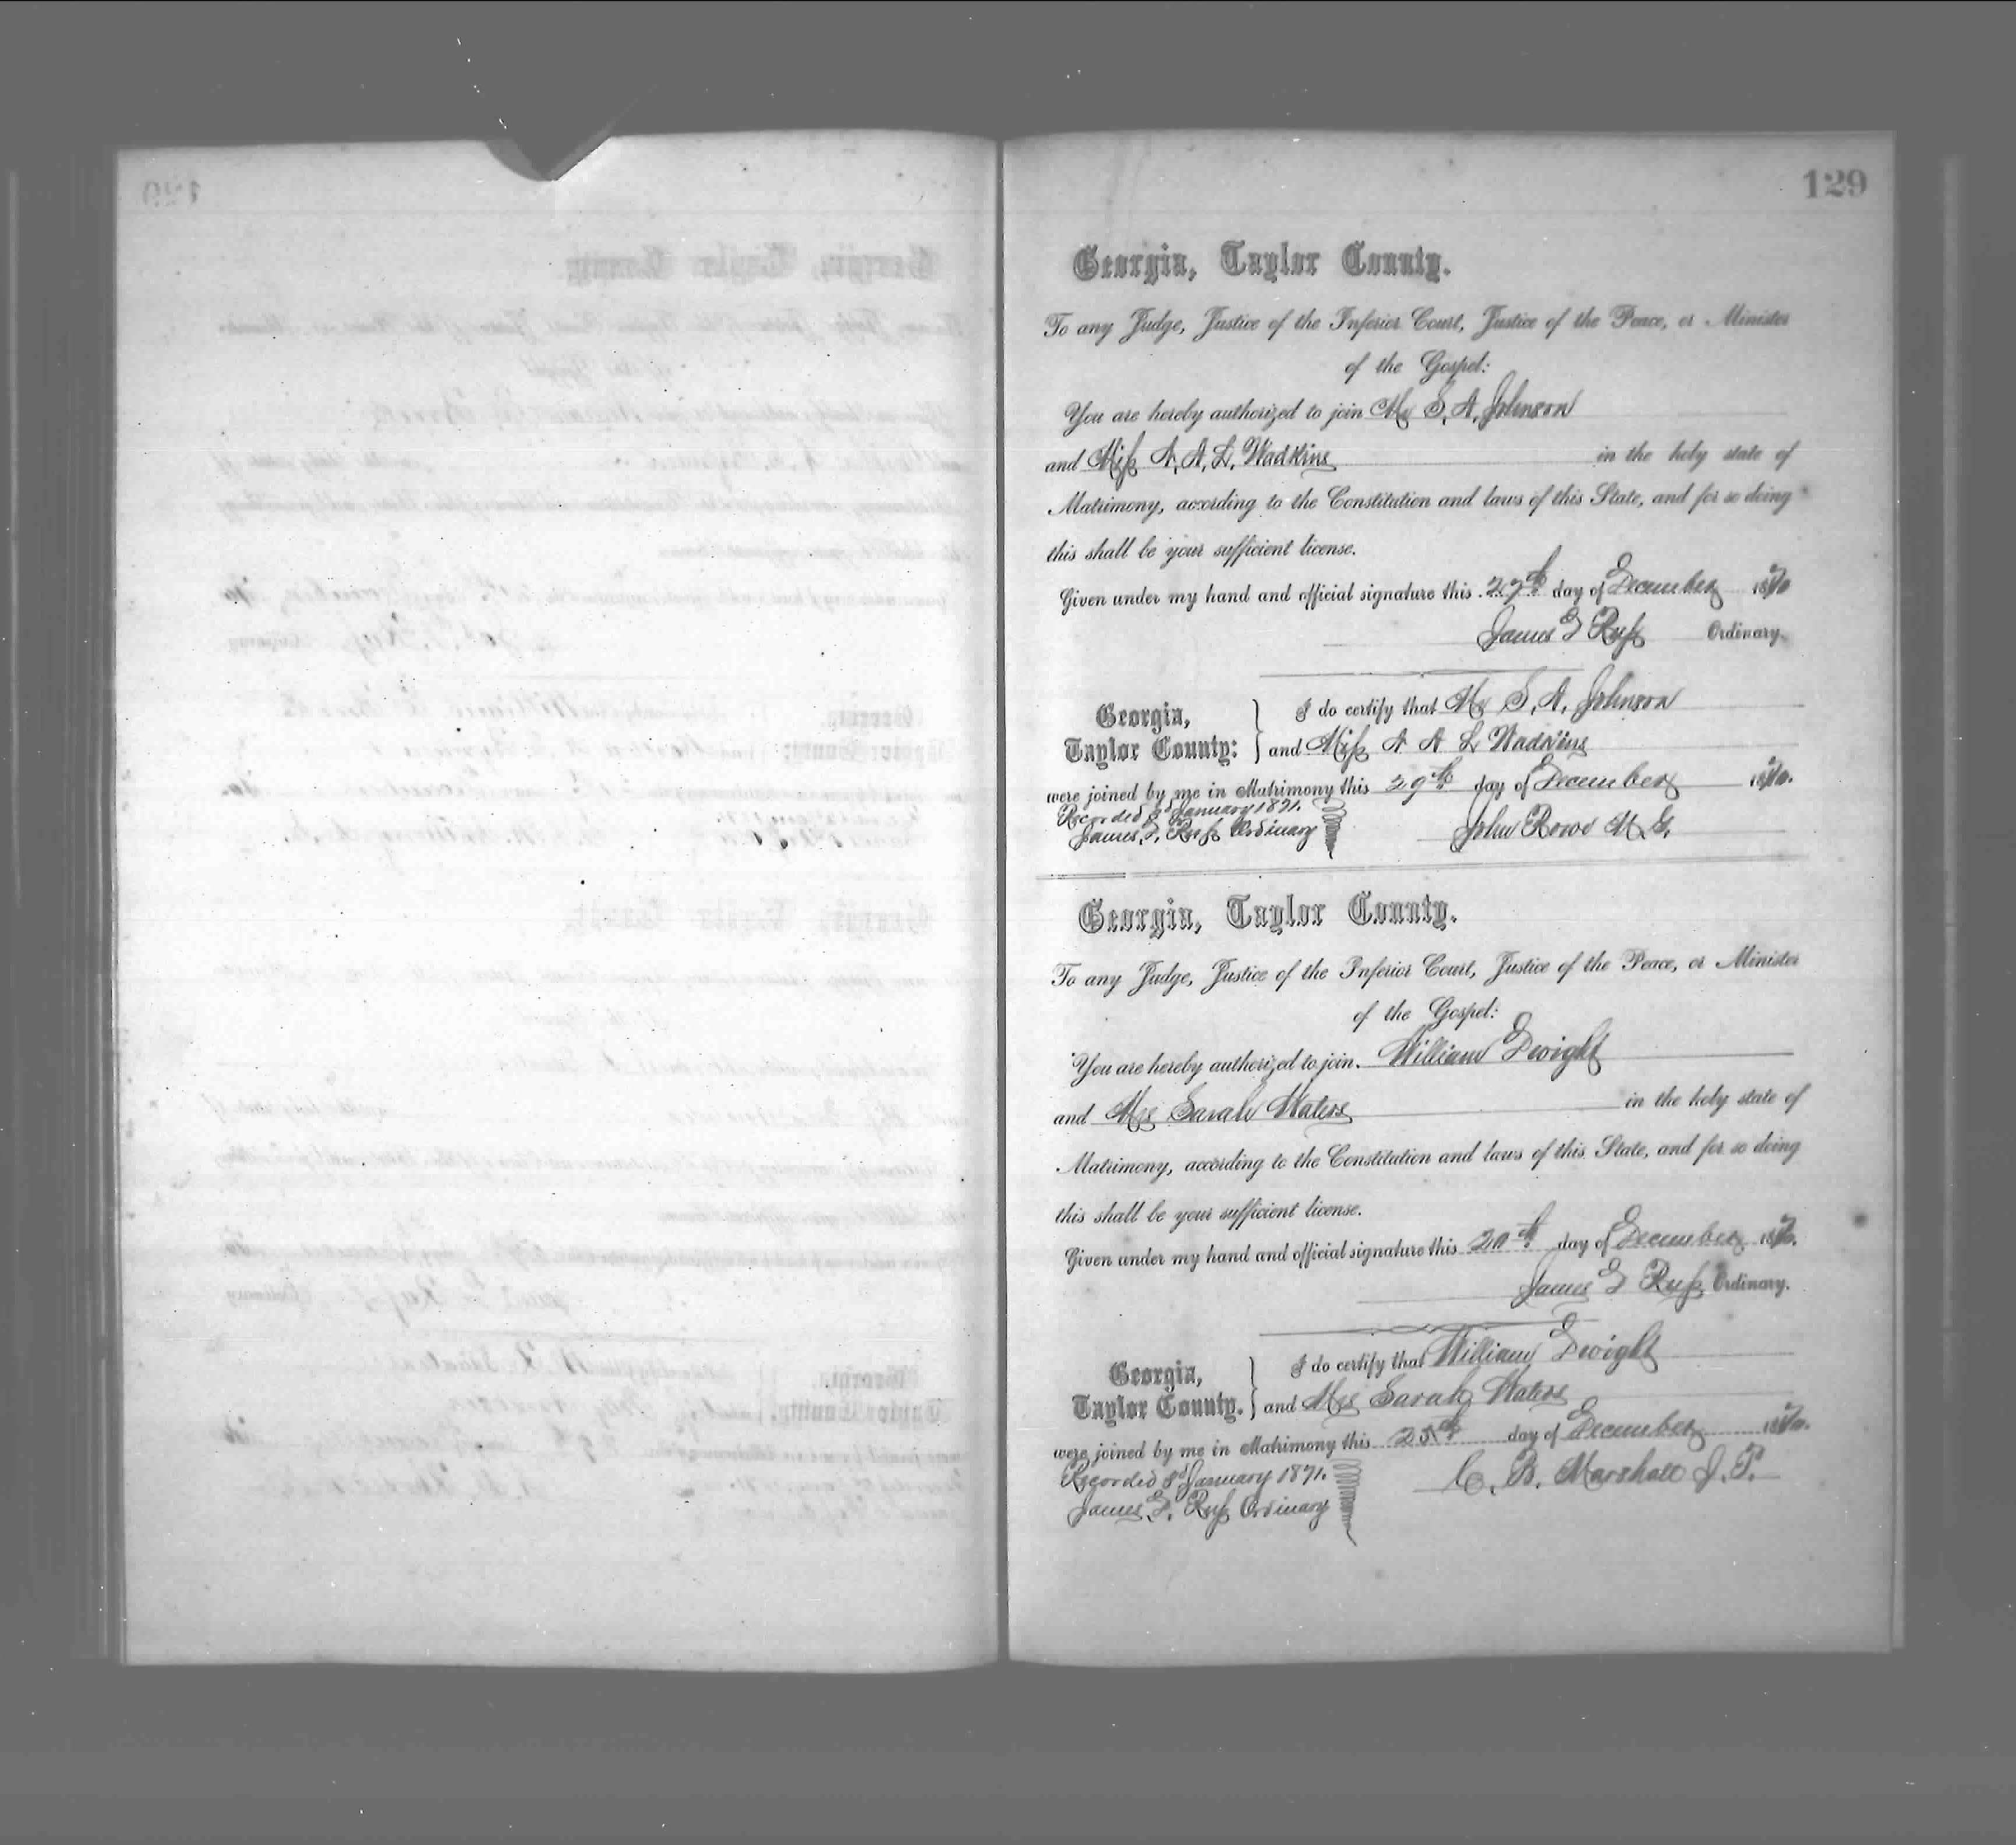 129
Georgia, Taylor County.
To any Judge, Justice of the Inferior Court, Justice of the Peace, or Minister
of the Gospel:
You are hereby authorized to join Mr S. A. Johnson
and Miss A. A. L. Wadkins in the holy state of
Matrimony, according to the Constitution and laws of this State, and for so doing
this shall be your sufficient license.
Given under my hand and official signature this 27th day of December 1870
James T Russ Ordinary.
Georgia,
Taylor County:
I do certify that Mr S. A. Johnson
and Miss A A L Wadkins
were joined by me in Matrimony this 29th day of December 1870.
Recorded 3d January 1871.
James T. Russ Ordinary
John Rowe M. G.
Georgia, Taylor County.
To any Judge, Justice of the Inferior Court, Justice of the Peace, or Minister
of the Gospel:
You are hereby authorized to join. William Dwight
and Mrs Sarah Waters in the holy state of
Matrimony, according to the Constitution and laws of this State, and for so doing
this shall be your sufficient license.
Given under my hand and official signature this 20th day of December 1870.
James T Russ Ordinary.
Georgia,
Taylor County.
I do certify that William Dwight
and Mrs Sarah Waters
were joined by me in Matrimony this 25th day of December 1870.
Recorded 3d January 1871.
James T. Russ Ordinary
C. B. Marshall J. P.